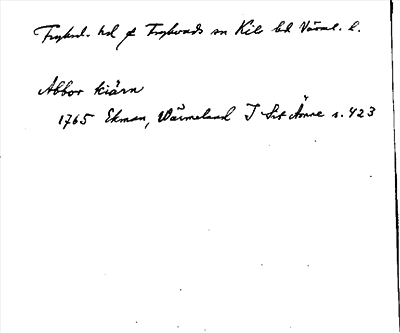 Fryksd. hd f Frykerud sn Kils hd Värml. l.
Abbor kiärn
1765 Ekman, Wärmeland I Sit Ämne s. 423